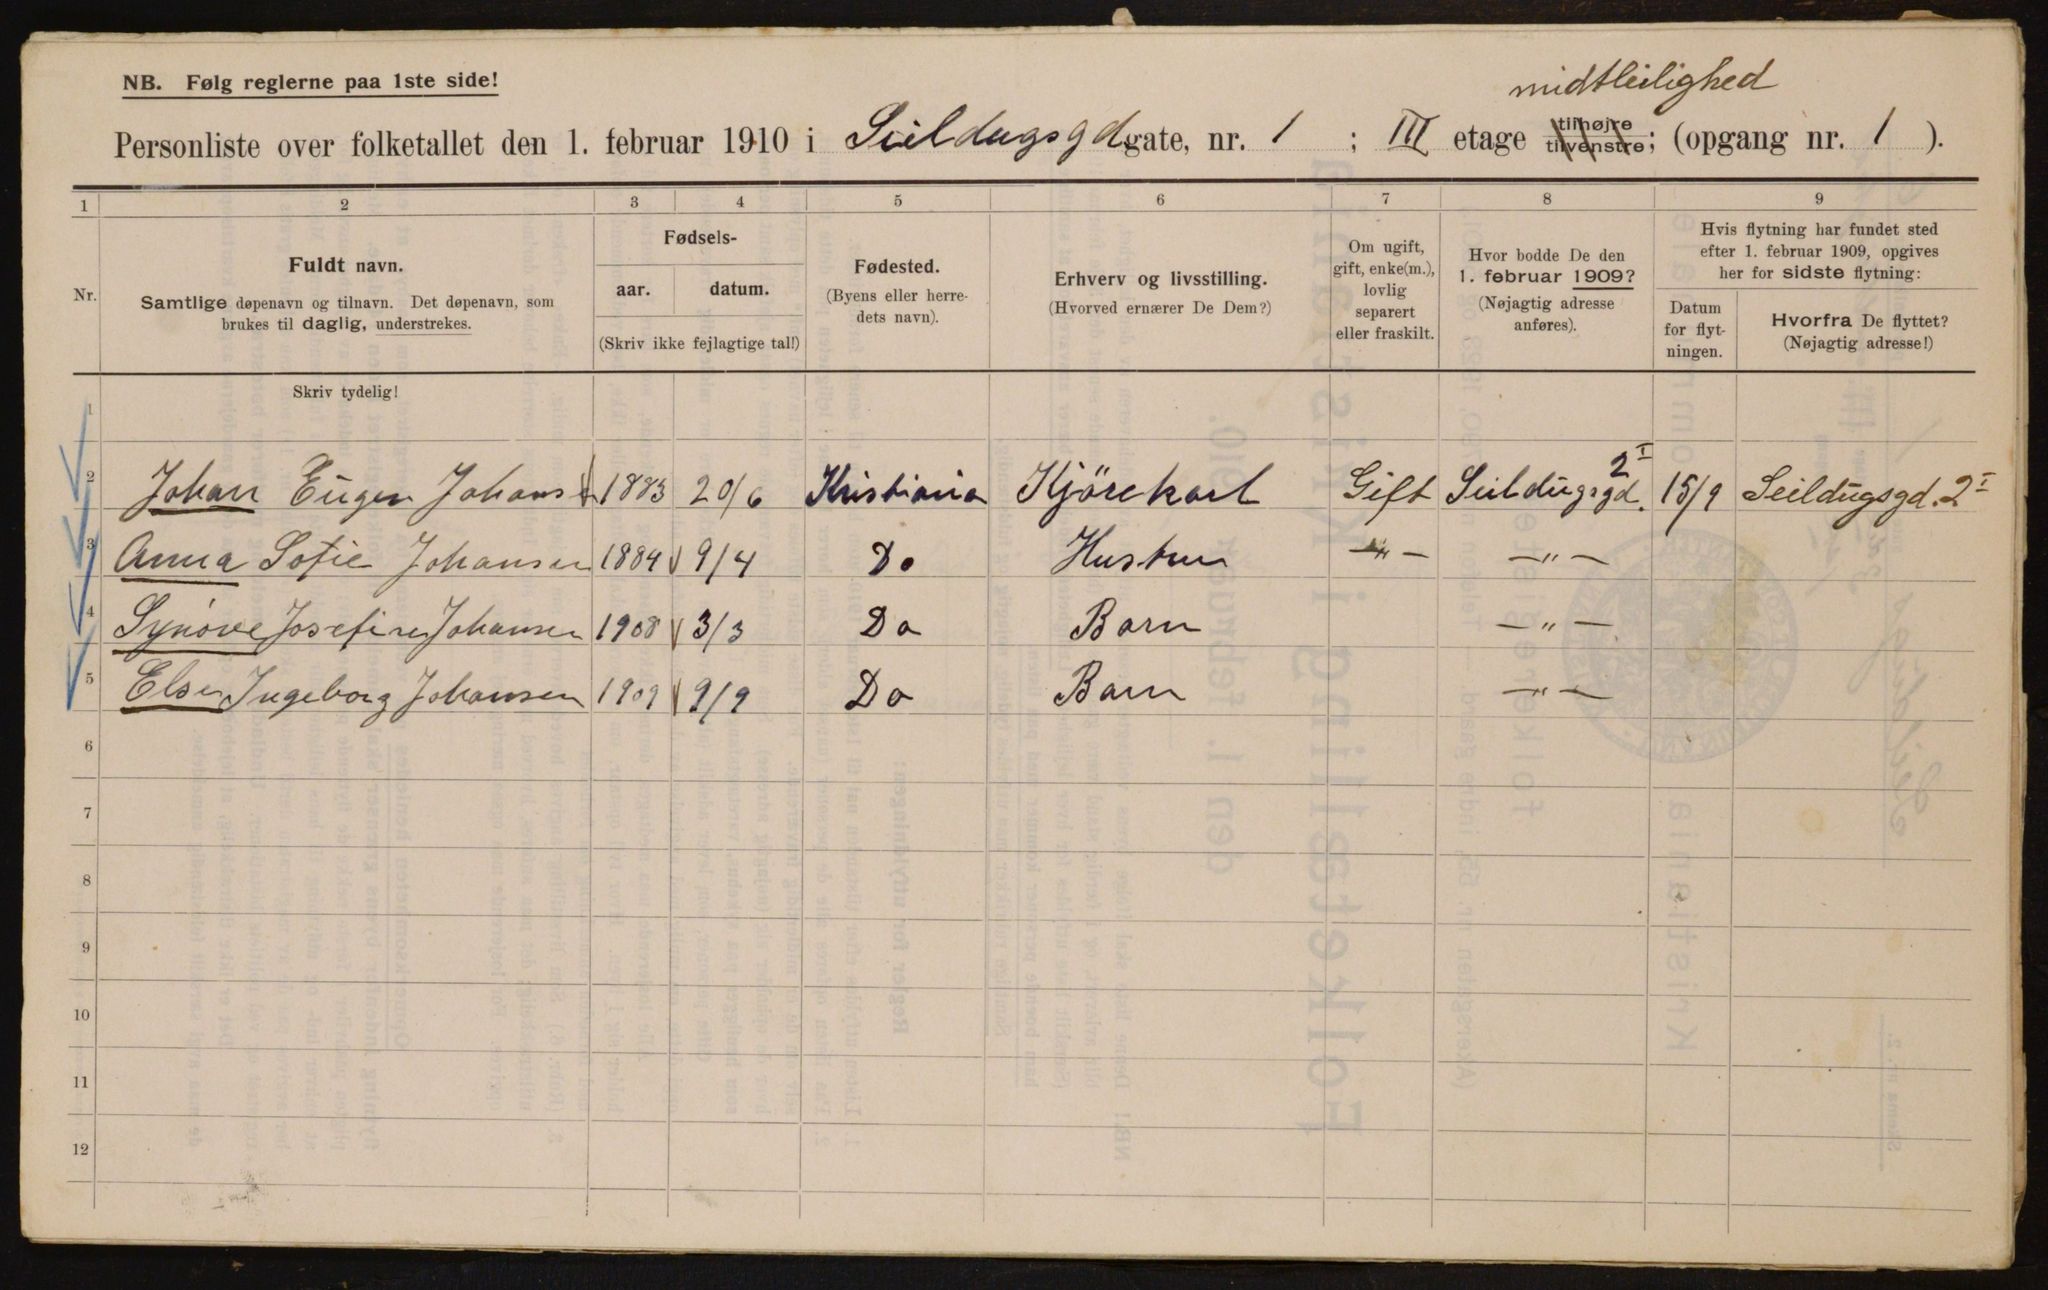 NB. Følg reglerne paa 1ste side!
midtleilighed
Personliste over folketallet den 1. februar 1910 i Seildugsgd. gate, nr. 1 ; III etage tilhøjre tilvenstre; (opgang nr. 1 ).
1 2 3 4 5 6 7 8 9
Nr.
Fuldt navn.
Samtlige døpenavn og tilnavn. Det døpenavn, som
brukes til daglig, understrekes.
Fødsels-
aar. datum.
(Skriv ikke fejlagtige tal!)
Fødested.
(Byens eller herre-
dets navn).
Erhverv og livsstilling.
(Hvorved ernærer De Dem?)
Om ugift,
gift, enke(m.),
lovlig
separert
eller fraskilt.
Hvor bodde De den
1. februar 1909?
(Nøjagtig adresse
anføres).
Hvis flytning har fundet sted
efter 1. februar 1909, opgives
her for sidste flytning:
Datum
for flyt-
ningen.
Hvorfra De flyttet?
(Nøjagtig adresse!)
Skriv tydelig!
1
2 Johan Eugen Johans 1883 20/6 Kristiania Kjörekarl Gift Seildugsgd. 2 I 15/9 Seildugsgd. 2 I
3 Anna Sofie Johansen 1884 9/4 Do Hustru —"— —"—
4 Synöve Josefine Johansen 1908 3/3 Do Barn —"—
5 Else Ingeborg Johansen 1909 9/9 Do Barn —"—
6
7
8
9
10
11
12